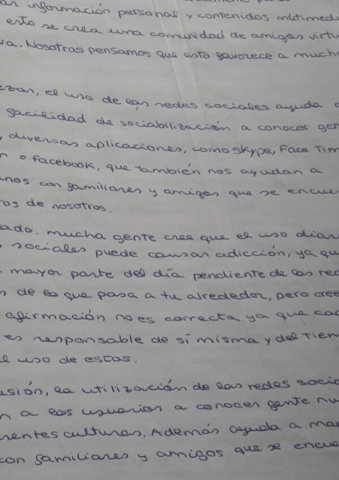 ar información personal y contenidos multimed
esto se crea una comunidad de amigos virtu
va. Nosotras pensamos que esto favorece a much
ezar, el uso de las redes sociales ayuda a
facilidad de sociabilización a conocer gen
diversas aplicaciones, como Skype, Face Tim
n o Facebook, que también nos ayudan a
nos con familiares y amigos que se encue
os de nosotros.
ado, mucha gente cree que el uso diar
sociales puede causar adicción, ya qu
mayor parte del día pendiente de las red
s de lo que pasa a tu alrededor, pero cree
afirmación no es correcta ya que cad
es responsable de sí misma y del tiem
l uso de estas.
usión, la utilización de las redes soci
n a los usuarios a conocer gente nu
rentes culturas. Además ayuda a man
con familiares y amigos que se encue